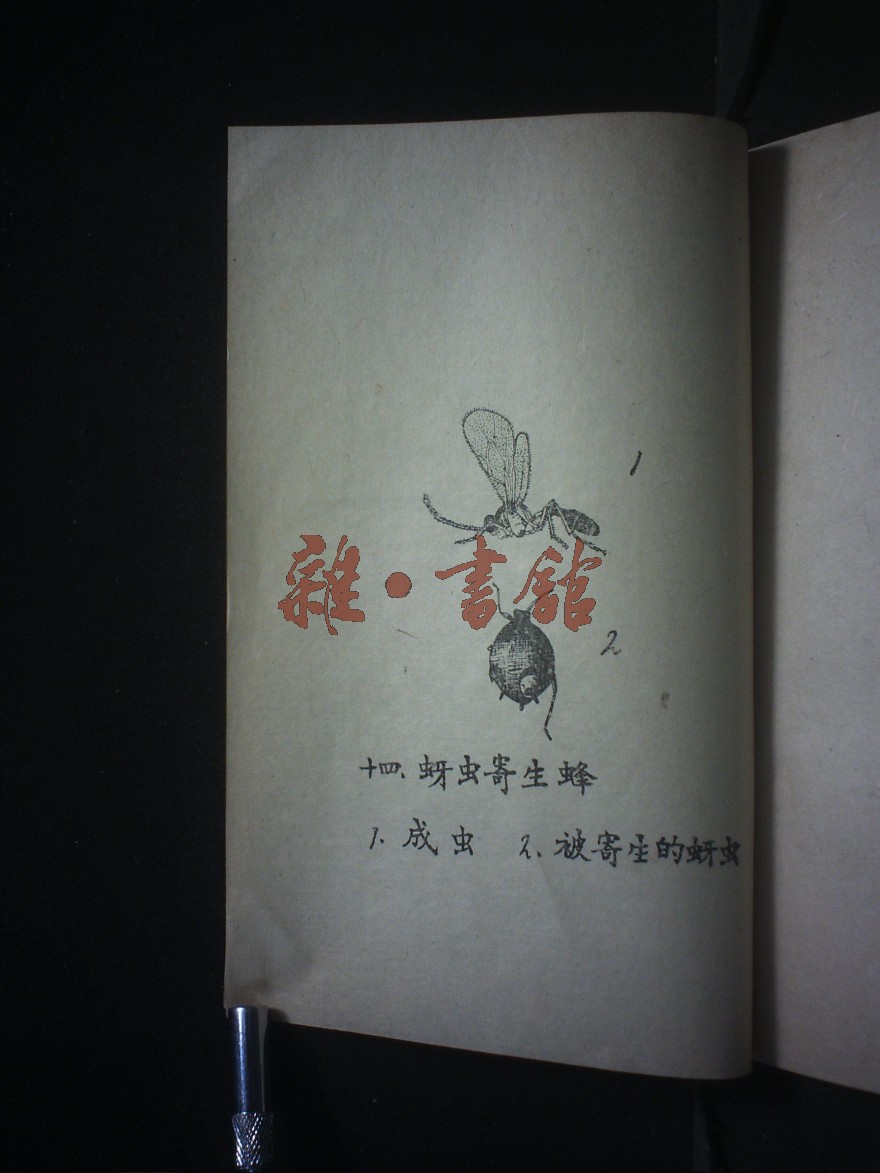 1
雜·書館
2
十四、蚜虫寄生蜂
1. 成虫 2. 被寄生的蚜虫